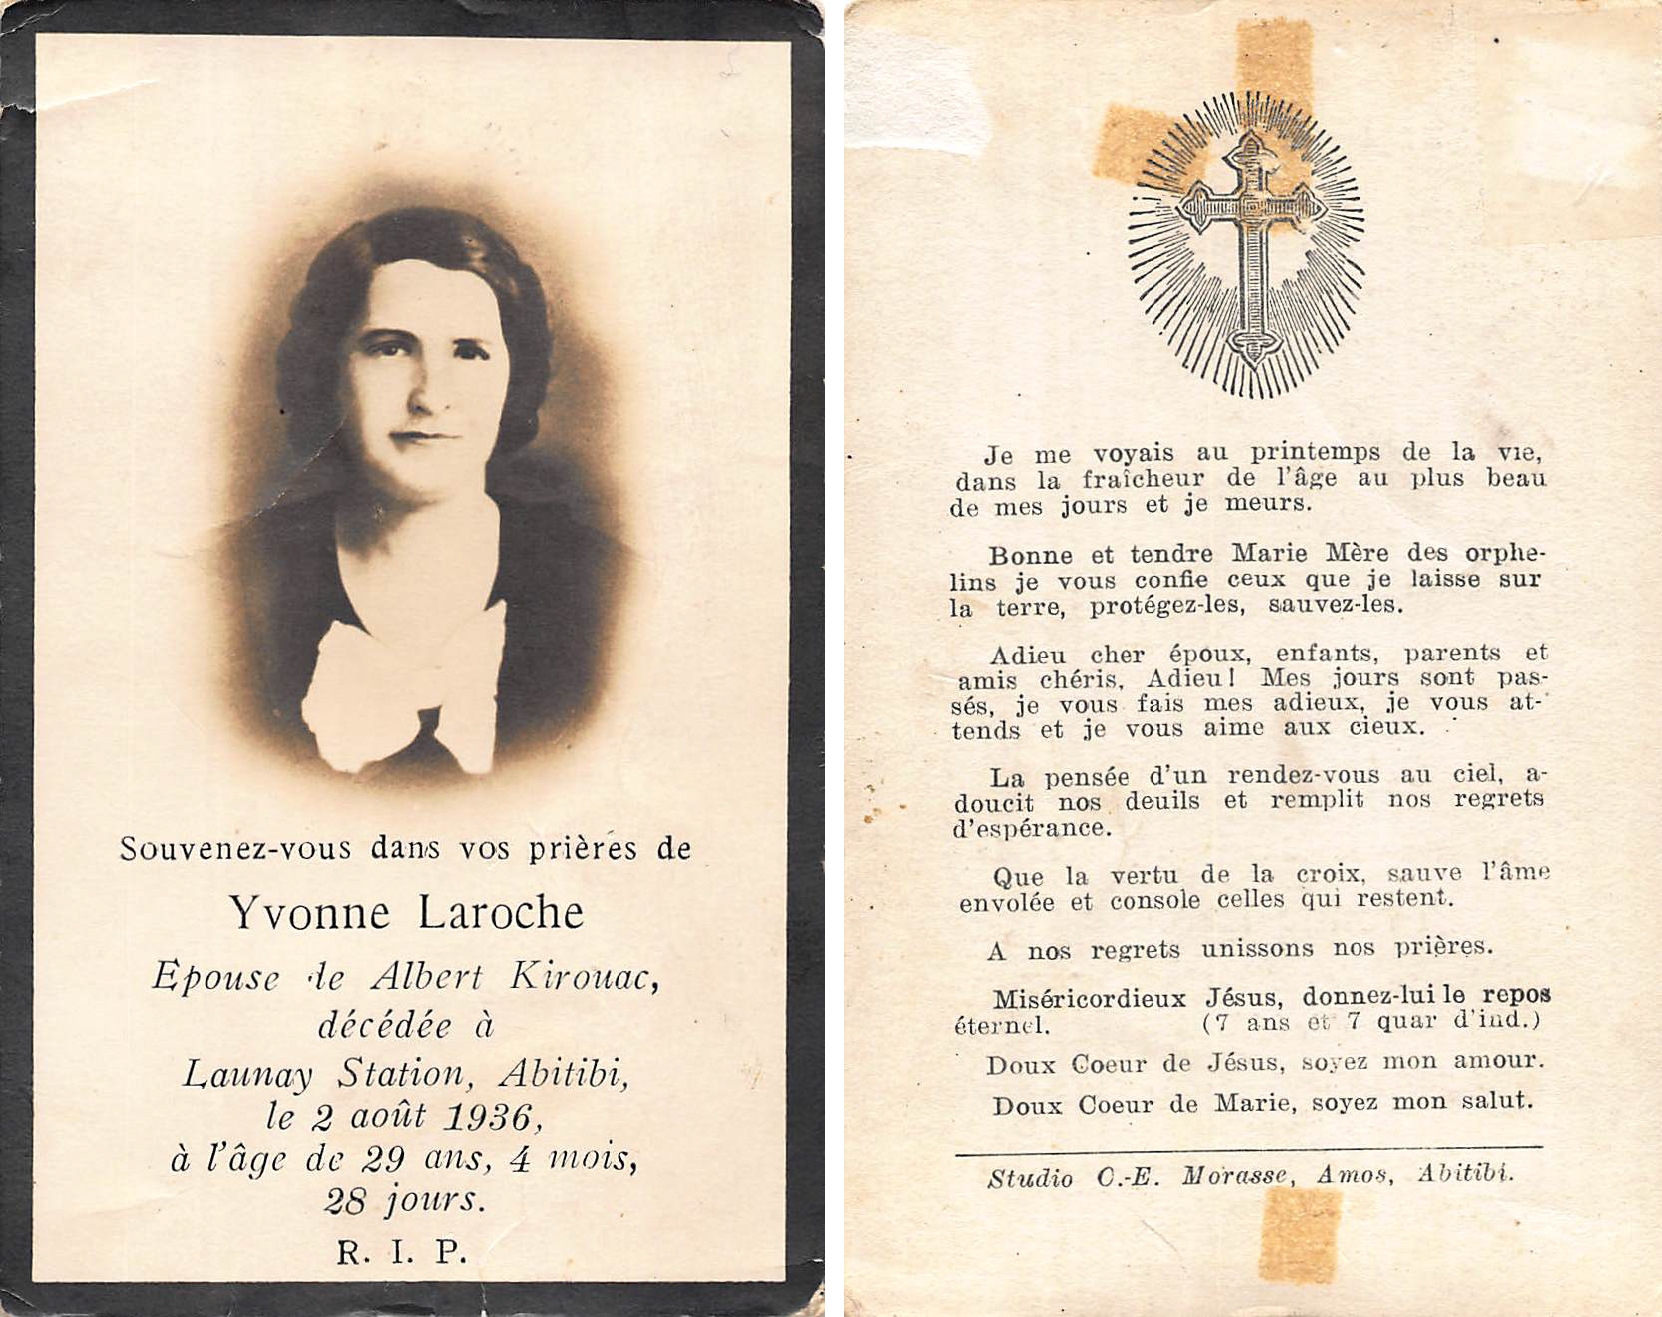 Souvenez-vous dans vos prières de
Yvonne Laroche
Epouse de Albert Kirouac,
décédée à
Launay Station, Abitibi,
le 2 août 1936,
à l'âge de 29 ans, 4 mois,
28 jours.
R. I. P.
Je me voyais au printemps de la vie,
dans la fraîcheur de l'âge au plus beau
de mes jours et je meurs.
Bonne et tendre Marie Mère des orphe-
lins je vous confie ceux que je laisse sur
la terre, protégez-les, sauvez-les.
Adieu cher époux, enfants, parents et
amis chéris, Adieu! Mes jours sont pas-
sés, je vous fais mes adieux, je vous at-
tends et je vous aime aux cieux.
La pensée d'un rendez-vous au ciel, a-
doucit nos deuils et remplit nos regrets
d'espérance.
Que la vertu de la croix, sauve l'âme
envolée et console celles qui restent.
A nos regrets unissons nos prières.
Miséricordieux Jésus, donnez-lui le repos
éternel. (7 ans et 7 quar d'ind.)
Doux Coeur de Jésus, soyez mon amour.
Doux Coeur de Marie, soyez mon salut.
Studio C.-E. Morasse, Amos, Abitibi.